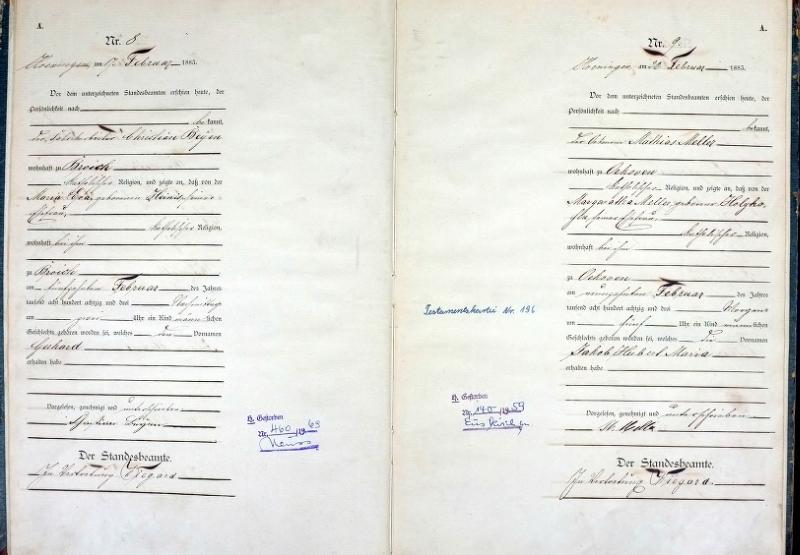 A.
Nr. 8
Hoeningen am 17. Februar 1883.
Vor dem unterzeichneten Standesbeamten erschien heute, der
Persönlichkeit nach
bekannt,
der Christian Beyen
wohnhaft zu Broich
katholischer Religion, und zeigte an, daß von der
Maria Eva, geborenen seiner
Ehefrau,
katholischer Religion,
wohnhaft bei ihm
zu Broich
am fünfzehnten Februar des Jahres
tausend acht hundert achtzig und drei Nachmittag
um zwei Uhr ein Kind männlichen
Geschlechts geboren worden sei, welches den Vornamen
Gerhard
erhalten habe
Vorgelesen, genehmigt und unterschrieben
Christian Beyen
Der Standesbeamte.
In Vertretung Wiegard
H. Gestorben
Nr. 460 /1963
Neuss
A.
Nr. 9
Hoeningen am 20 Februar 1883.
Vor dem unterzeichneten Standesbeamten erschien heute, der
Persönlichkeit nach
bekannt,
der Ackerer Mathias Meller
wohnhaft zu Oekoven
katholischer Religion, und zeigte an, daß von der
Margaretha Meller, geborenen
seiner Ehefrau
katholischer Religion,
wohnhaft bei ihm
zu Oekoven
am neunzehnten Februar des Jahres
tausend acht hundert achtzig und drei Morgens
um fünf Uhr ein Kind männlichen
Geschlechts geboren worden sei, welches die Vornamen
Jakob Hubert Maria
erhalten habe
Vorgelesen, genehmigt und unterschrieben
M. Meller
Der Standesbeamte.
In Vertretung Wiegard.
Testamentskartei Nr. 196
H. Gestorben
Nr. 140 /1959
Euskirchen